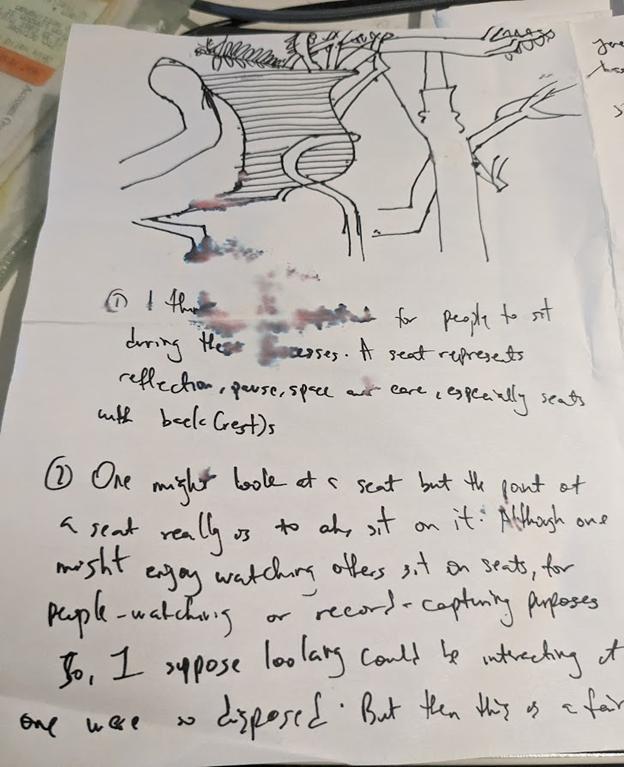 ① I
for people to sit
during the
. A seat represents
reflection, pause, space care, especially seats
with back(rest)s
② One might look at a seat but the point of
a seat really is to ah, sit on it. Although one
might enjoy watching others sit on seats, for
people-watching or record-capturing purposes
So, I suppose looking could be interacting if
one were so disposed. But then this is a fair